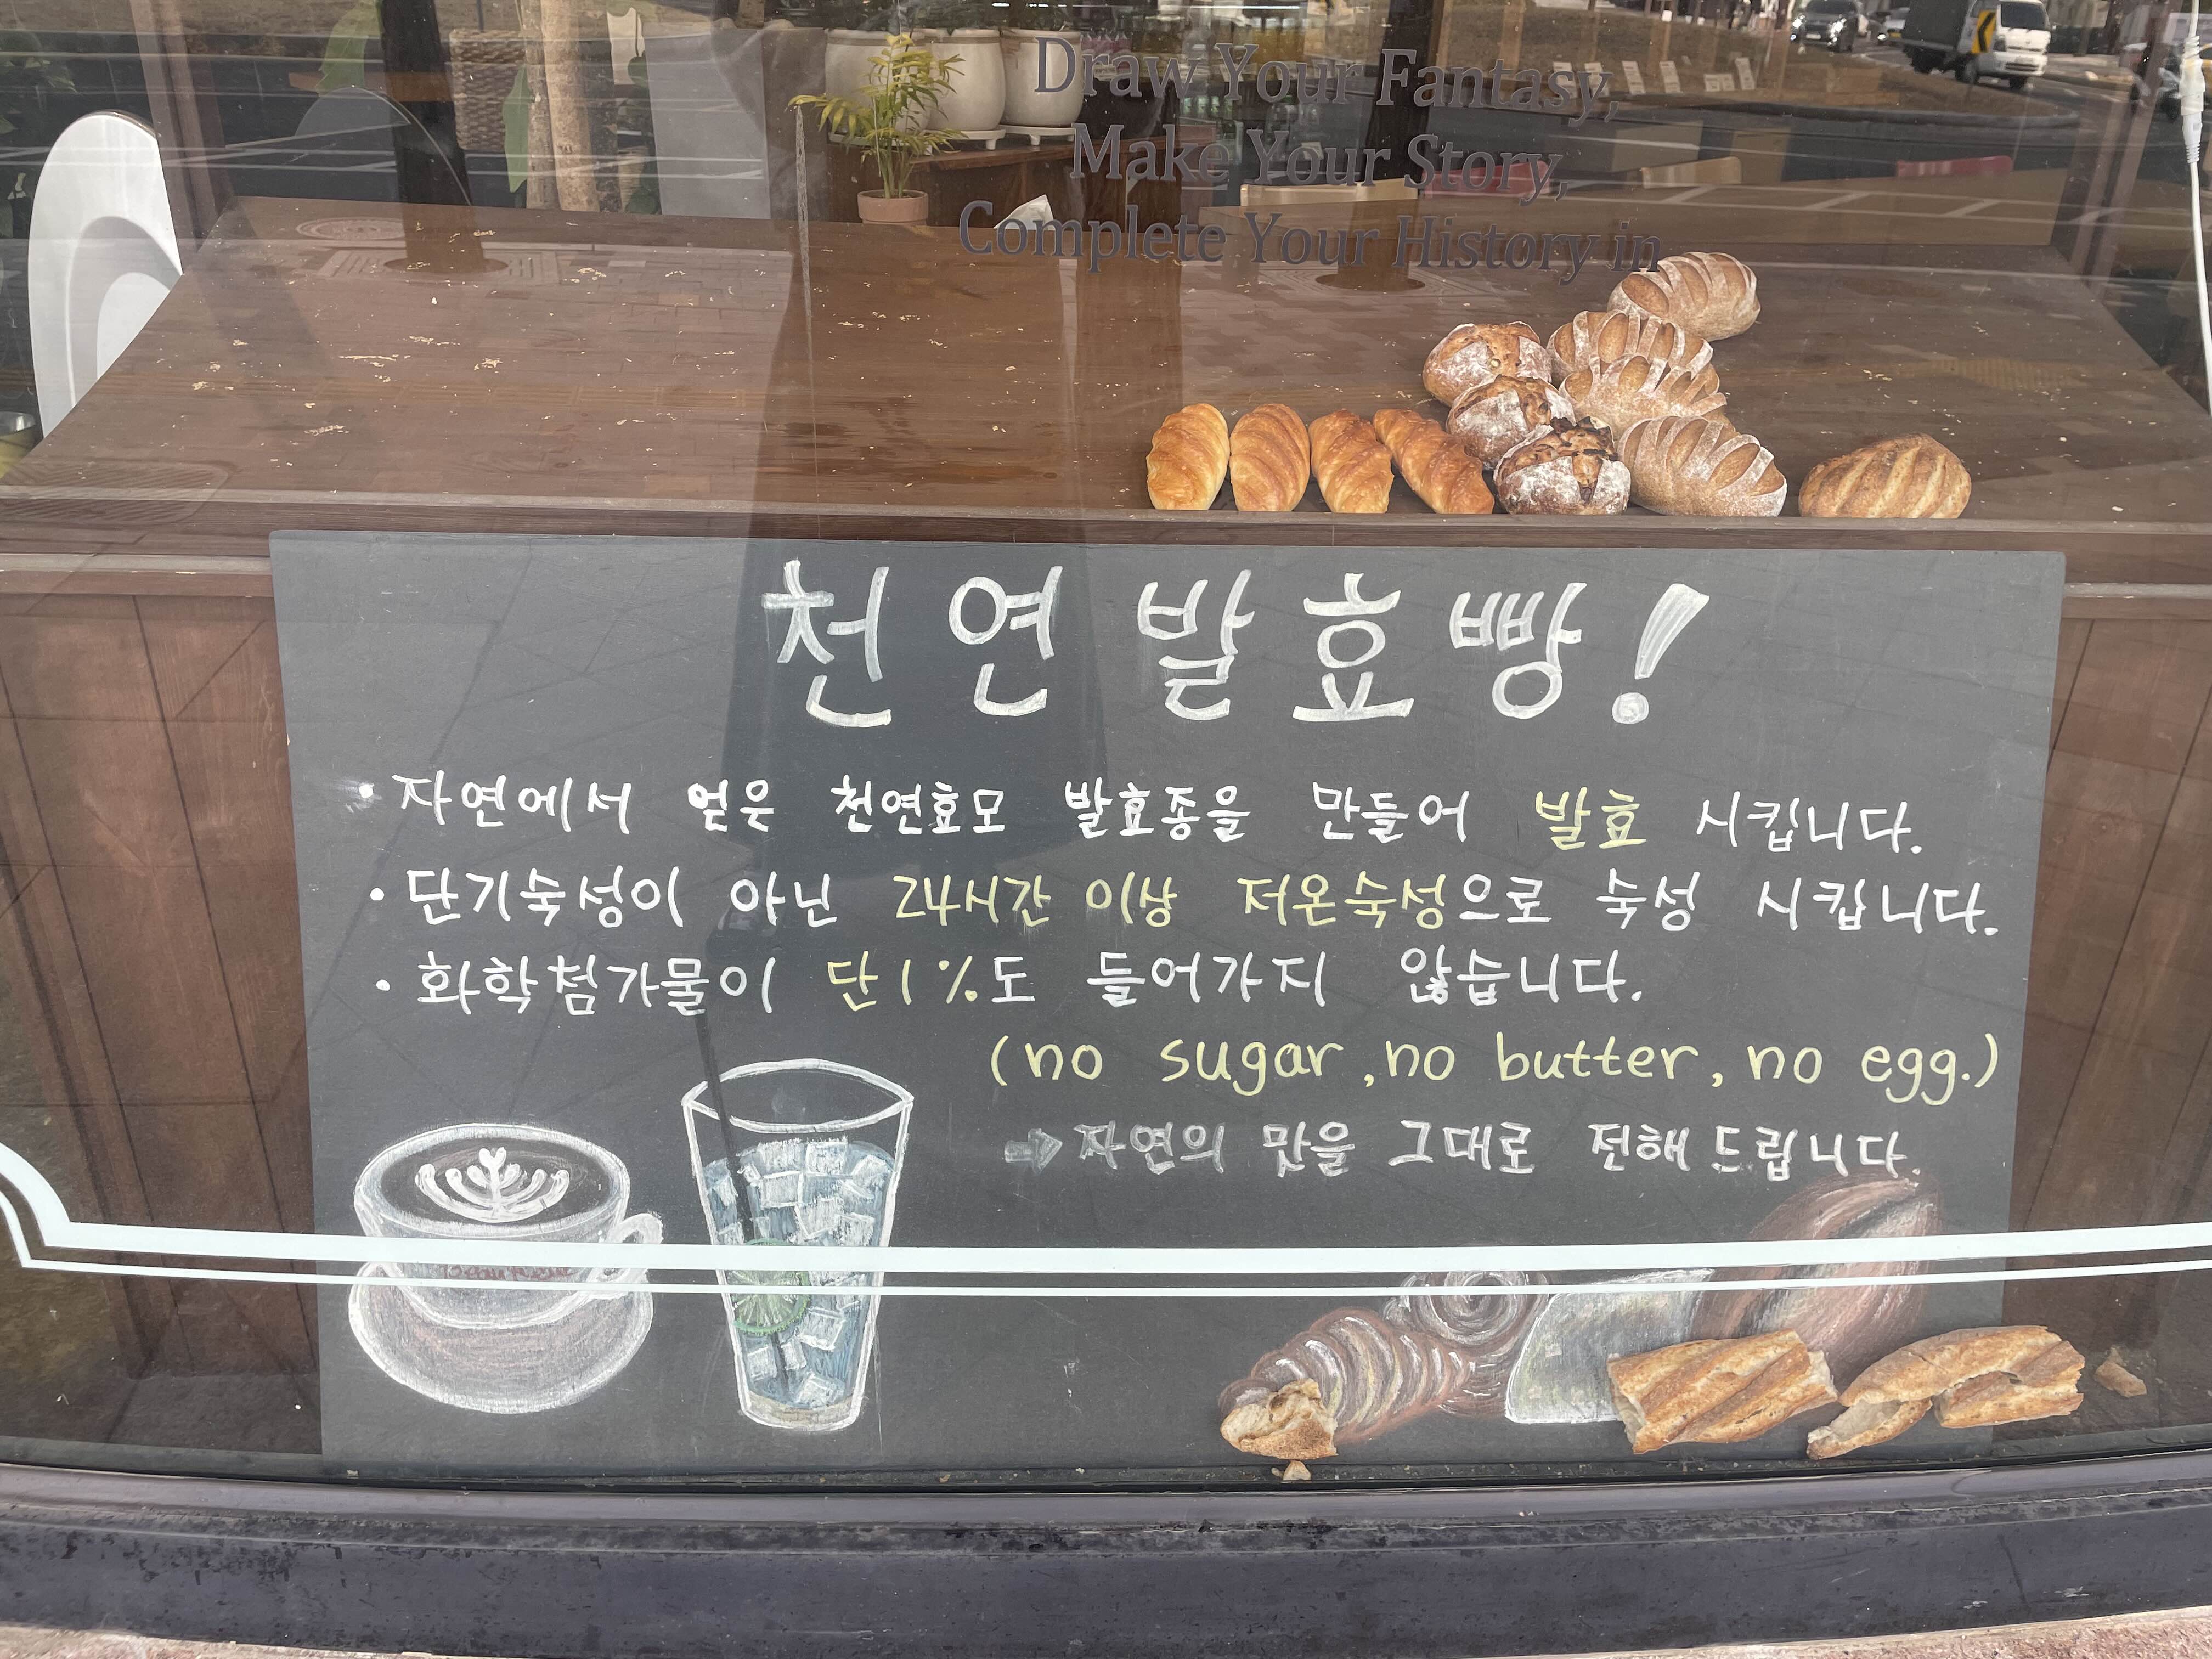 Draw Your Fantasy,
Make Your Story,
Complete Your History in
천연발효빵!
• 자연에서 얻은 천연효모 발효종을 만들어 발효 시킵니다.
• 단기숙성이 아닌 24시간 이상 저온숙성으로 숙성 시킵니다.
• 화학첨가물이 단1%도 들어가지 않습니다.
(no sugar, no butter, no egg.)
➡ 자연의 맛을 그대로 전해드립니다.